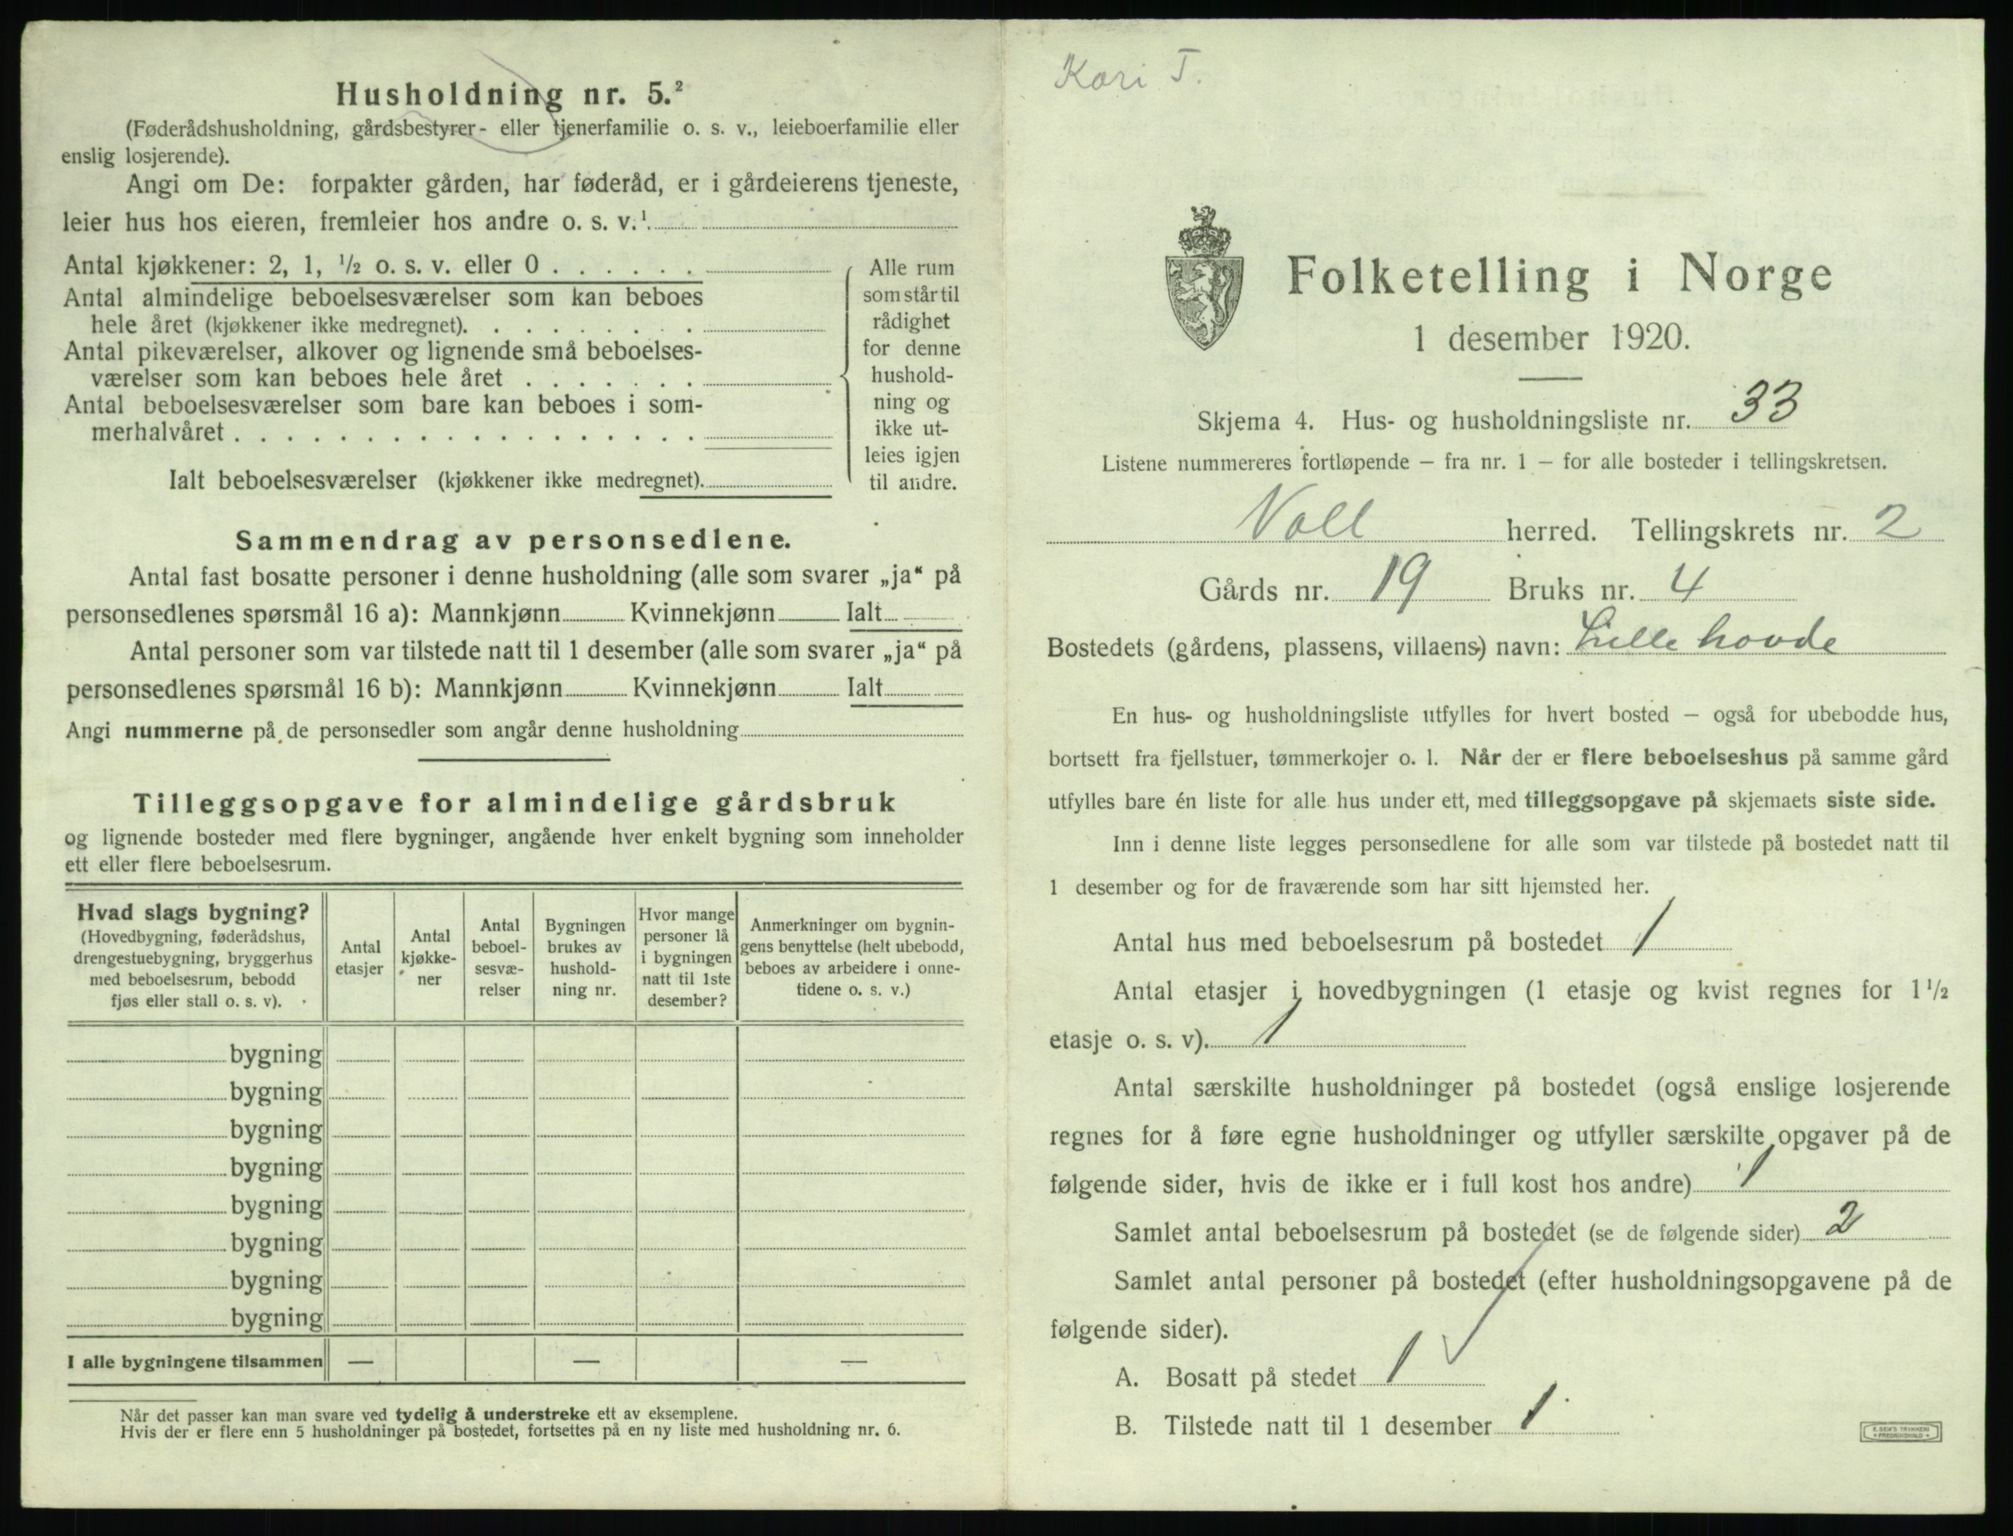 Husholdning nr. 5.²
(Føderådshusholdning, gårdsbestyrer- eller tjenerfamilie o. s. v., leieboerfamilie eller
enslig losjerende).
Angi om De: forpakter gården, har føderåd, er i gårdeierens tjeneste,
leier hus hos eieren, fremleier hos andre o. s. v.¹
Antal kjøkkener: 2, 1, ½ o. s. v. eller 0 . . . . . .
Antal almindelige beboelsesværelser som kan beboes
hele året (kjøkkener ikke medregnet). . . . . . . . .
Antal pikeværelser, alkover og lignende små beboelses-
værelser som kan beboes hele året . . . . . . .
Antal beboelsesværelser som bare kan beboes i som-
merhalvåret . . . . . . . . . . . . . . . . . .
Ialt beboelsesværelser (kjøkkener ikke medregnet).
Alle rum
som står til
rådighet
for denne
hushold-
ning og
ikke ut-
leies igjen
til andre.
Sammendrag av personsedlene.
Antal fast bosatte personer i denne husholdning (alle som svarer „ja“ på
personsedlenes spørsmål 16 a): Mannkjønn Kvinnekjønn Ialt
Antal personer som var tilstede natt til 1 desember (alle som svarer „ja“ på
personsedlenes spørsmål 16 b): Mannkjønn Kvinnekjønn Ialt
Angi nummerne på de personsedler som angår denne husholdning
Tilleggsopgave for almindelige gårdsbruk
og lignende bosteder med flere bygninger, angående hver enkelt bygning som inneholder
ett eller flere beboelsesrum.
Hvad slags bygning?
(Hovedbygning, føderådshus,
drengestuebygning, bryggerhus
med beboelsesrum, bebodd
fjøs eller stall o. s. v).
Antal
etasjer
Antal
kjøkke-
ner
Antal
beboel-
sesvæ-
relser
Bygningen
brukes av
hushold-
ning nr.
Hvor mange
personer lå
i bygningen
natt til 1ste
desember?
Anmerkninger om bygnin-
gens benyttelse (helt ubebodd,
beboes av arbeidere i onne-
tidene o. s. v.)
bygning
bygning
bygning
bygning
bygning
bygning
bygning
bygning
I alle bygningene tilsammen — — —
Når det passer kan man svare ved tydelig å understreke ett av eksemplene.
Hvis der er flere enn 5 husholdninger på bostedet, fortsettes på en ny liste med husholdning nr. 6.
Kari T.
Folketelling i Norge
1 desember 1920.
Skjema 4. Hus- og husholdningsliste nr. 33
Listene nummereres fortløpende – fra nr. 1 – for alle bosteder i tellingskretsen.
Voll herred. Tellingskrets nr. 2
Gårds nr. 19 Bruks nr. 4
Bostedets (gårdens, plassens, villaens) navn: Lillehovde
En hus- og husholdningsliste utfylles for hvert bosted – også for ubebodde hus,
bortsett fra fjellstuer, tømmerkojer o. l. Når der er flere beboelseshus på samme gård
utfylles bare én liste for alle hus under ett, med tilleggsopgave på skjemaets siste side.
Inn i denne liste legges personsedlene for alle som var tilstede på bostedet natt til
1 desember og for de fraværende som har sitt hjemsted her.
Antal hus med beboelsesrum på bostedet 1
Antal etasjer i hovedbygningen (1 etasje og kvist regnes for 1½
etasje o. s. v). 1
Antal særskilte husholdninger på bostedet (også enslige losjerende
regnes for å føre egne husholdninger og utfyller særskilte opgaver på de
følgende sider, hvis de ikke er i full kost hos andre) 1
Samlet antal beboelsesrum på bostedet (se de følgende sider) 2
Samlet antal personer på bostedet (efter husholdningsopgavene på de
følgende sider).
A. Bosatt på stedet 1
B. Tilstede natt til 1 desember 1